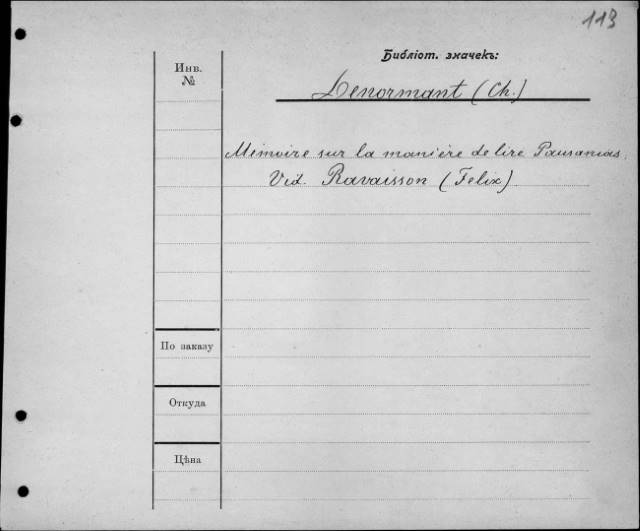 113
Библіот. значекъ:
Инв.
№
Lenormant (Ch.)
Mémoire sur la manière de lire Pausanias.
Vid. Ravaisson (Felix)
По заказу
Откуда
Цѣна